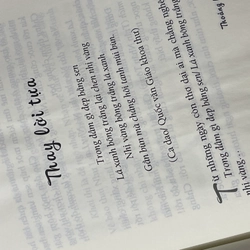 Thay lời tựa
Trong đầm gì đẹp bằng sen
Lá xanh bông trắng lại chen nhị vàng
Nhị vàng bông trắng lá xanh
Gần bùn mà chẳng hôi tanh mùi bùn.
(Ca dao/ Quốc văn Giáo khoa thư)
Từ những ngày còn thơ dại ai mà chẳng nghe
Trong đầm gì đẹp bằng sen/ Lá xanh bông trắng
nhị vàng...
Thoảng